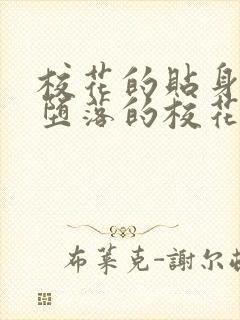 校花的貼身
墮落的校花
布萊克-謝尔